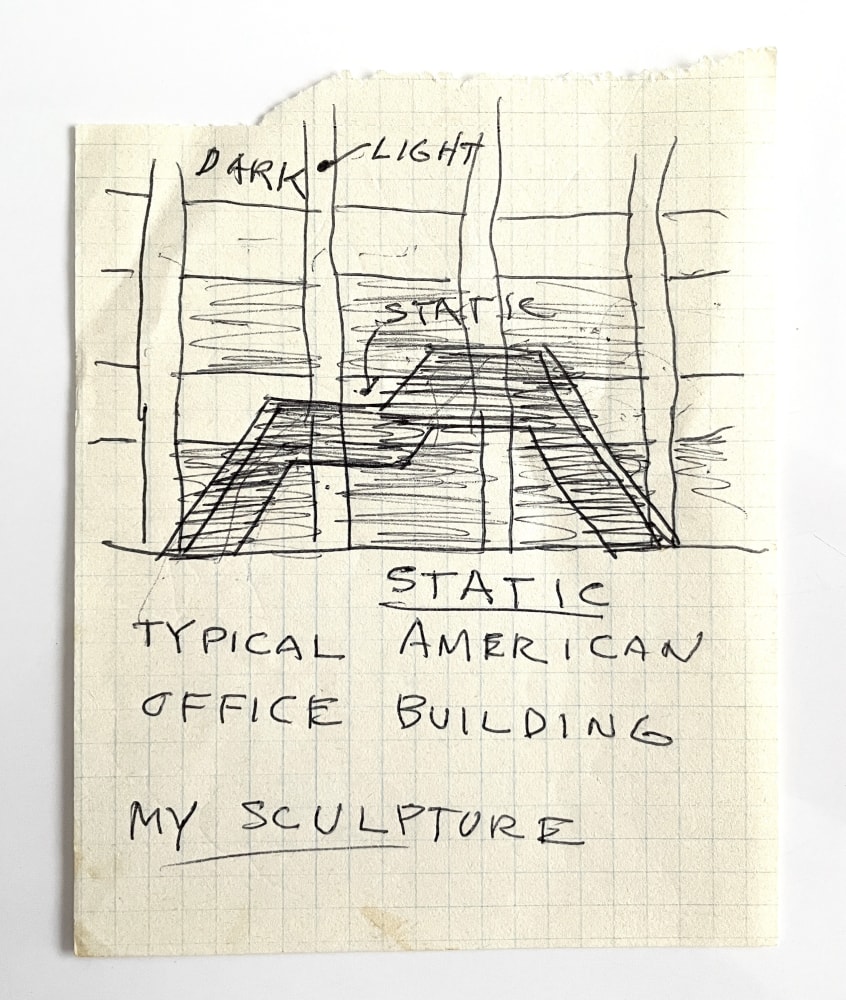 DARK LIGHT
STATIC
STATIC
TYPICAL AMERICAN
OFFICE BUILDING
MY SCULPTURE